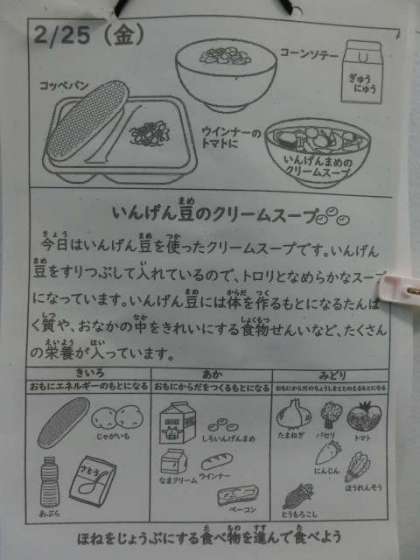 2/25（金）
コーンソテー
ぎゅう
にゅう
コッペパン
ウインナーの
トマトに
いんげんまめの
クリームスープ
いんげん豆のクリームスープ
今日はいんげん豆を使ったクリームスープです。いんげん
豆をすりつぶして入れているので、トロリとなめらかなスープ
になっています。いんげん豆には体を作るもとになるたんぱ
く質や、おなかの中をきれいにする食物せんいなど、たくさん
の栄養が入っています。
きいろ
あか
みどり
おもにエネルギーのもとになる
おもにからだをつくるもとになる
おもにからだのちょうしをととのえるもとになる
じゃがいも
あぶら
さとう
しろいんげんまめ
なまクリーム
ウインナー
ベーコン
たまねぎ
パセリ
トマト
にんじん
ほうれんそう
とうもろこし
ほねをじょうぶにする食べ物を進んで食べよう